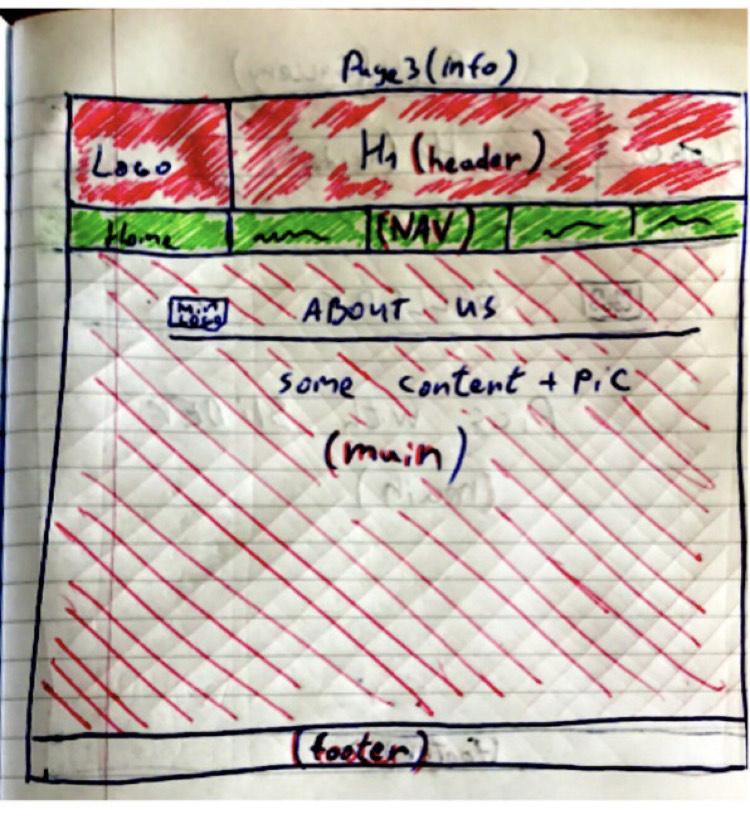 Page 3 (info)
Logo H1 (header)
Home (NAV)
MiNi LOGO ABOUT US
some content + PiC
(main)
(footer)